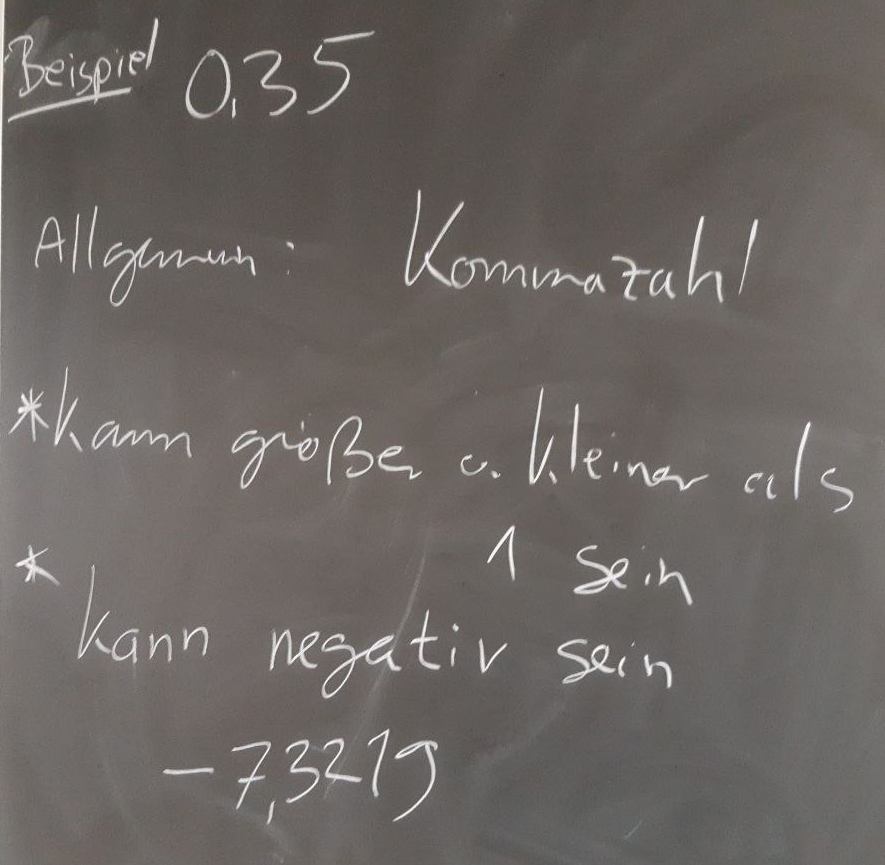 Beispiel 0,35
Allgemein: Kommazahl
*kann größer o. kleiner als
1 sein
* kann negativ sein
-7,3219